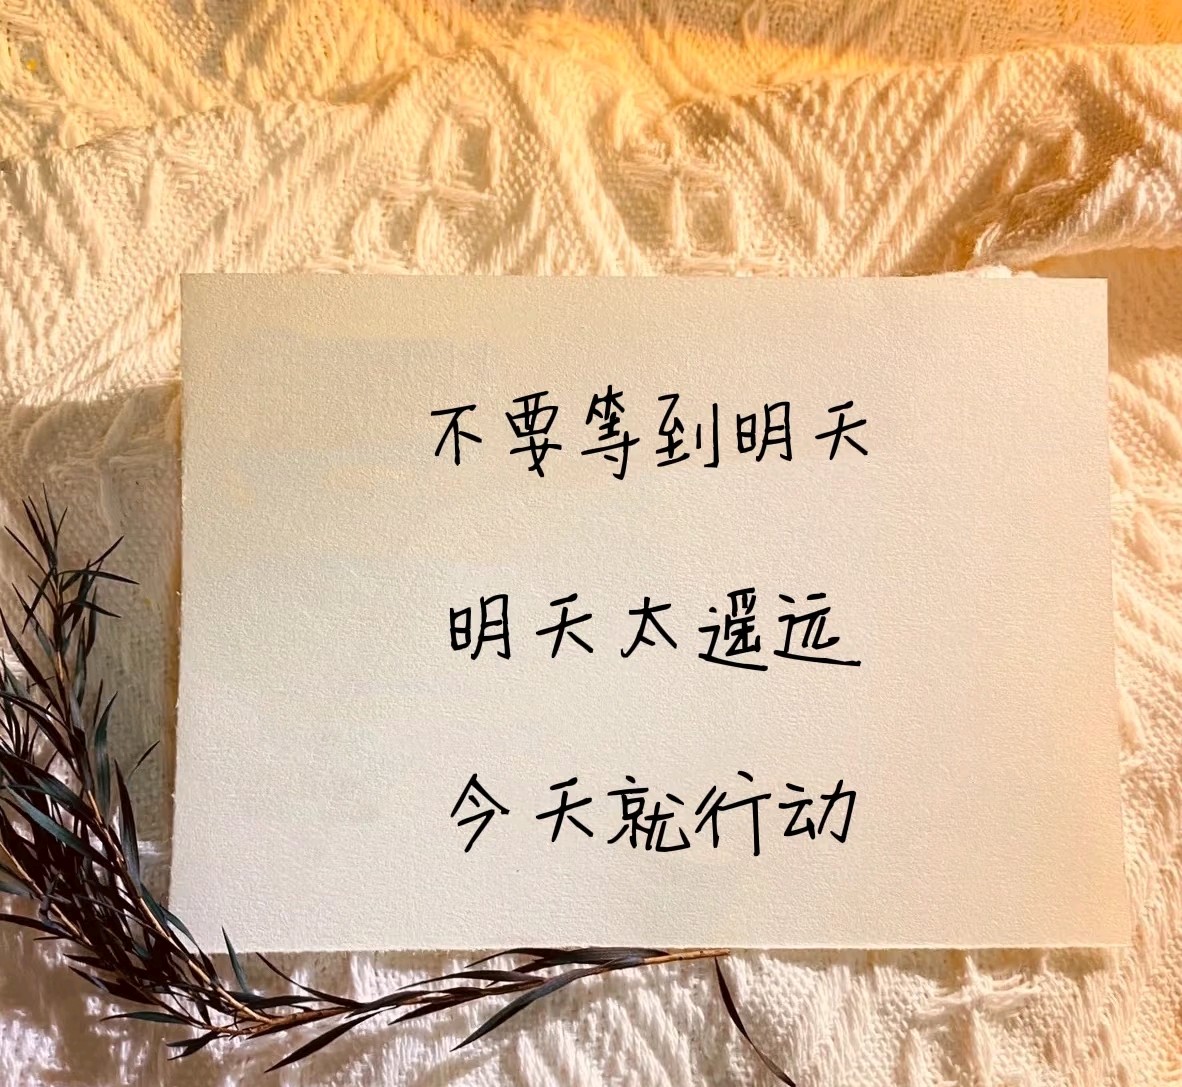 不要等到明天
明天太遥远
今天就行动